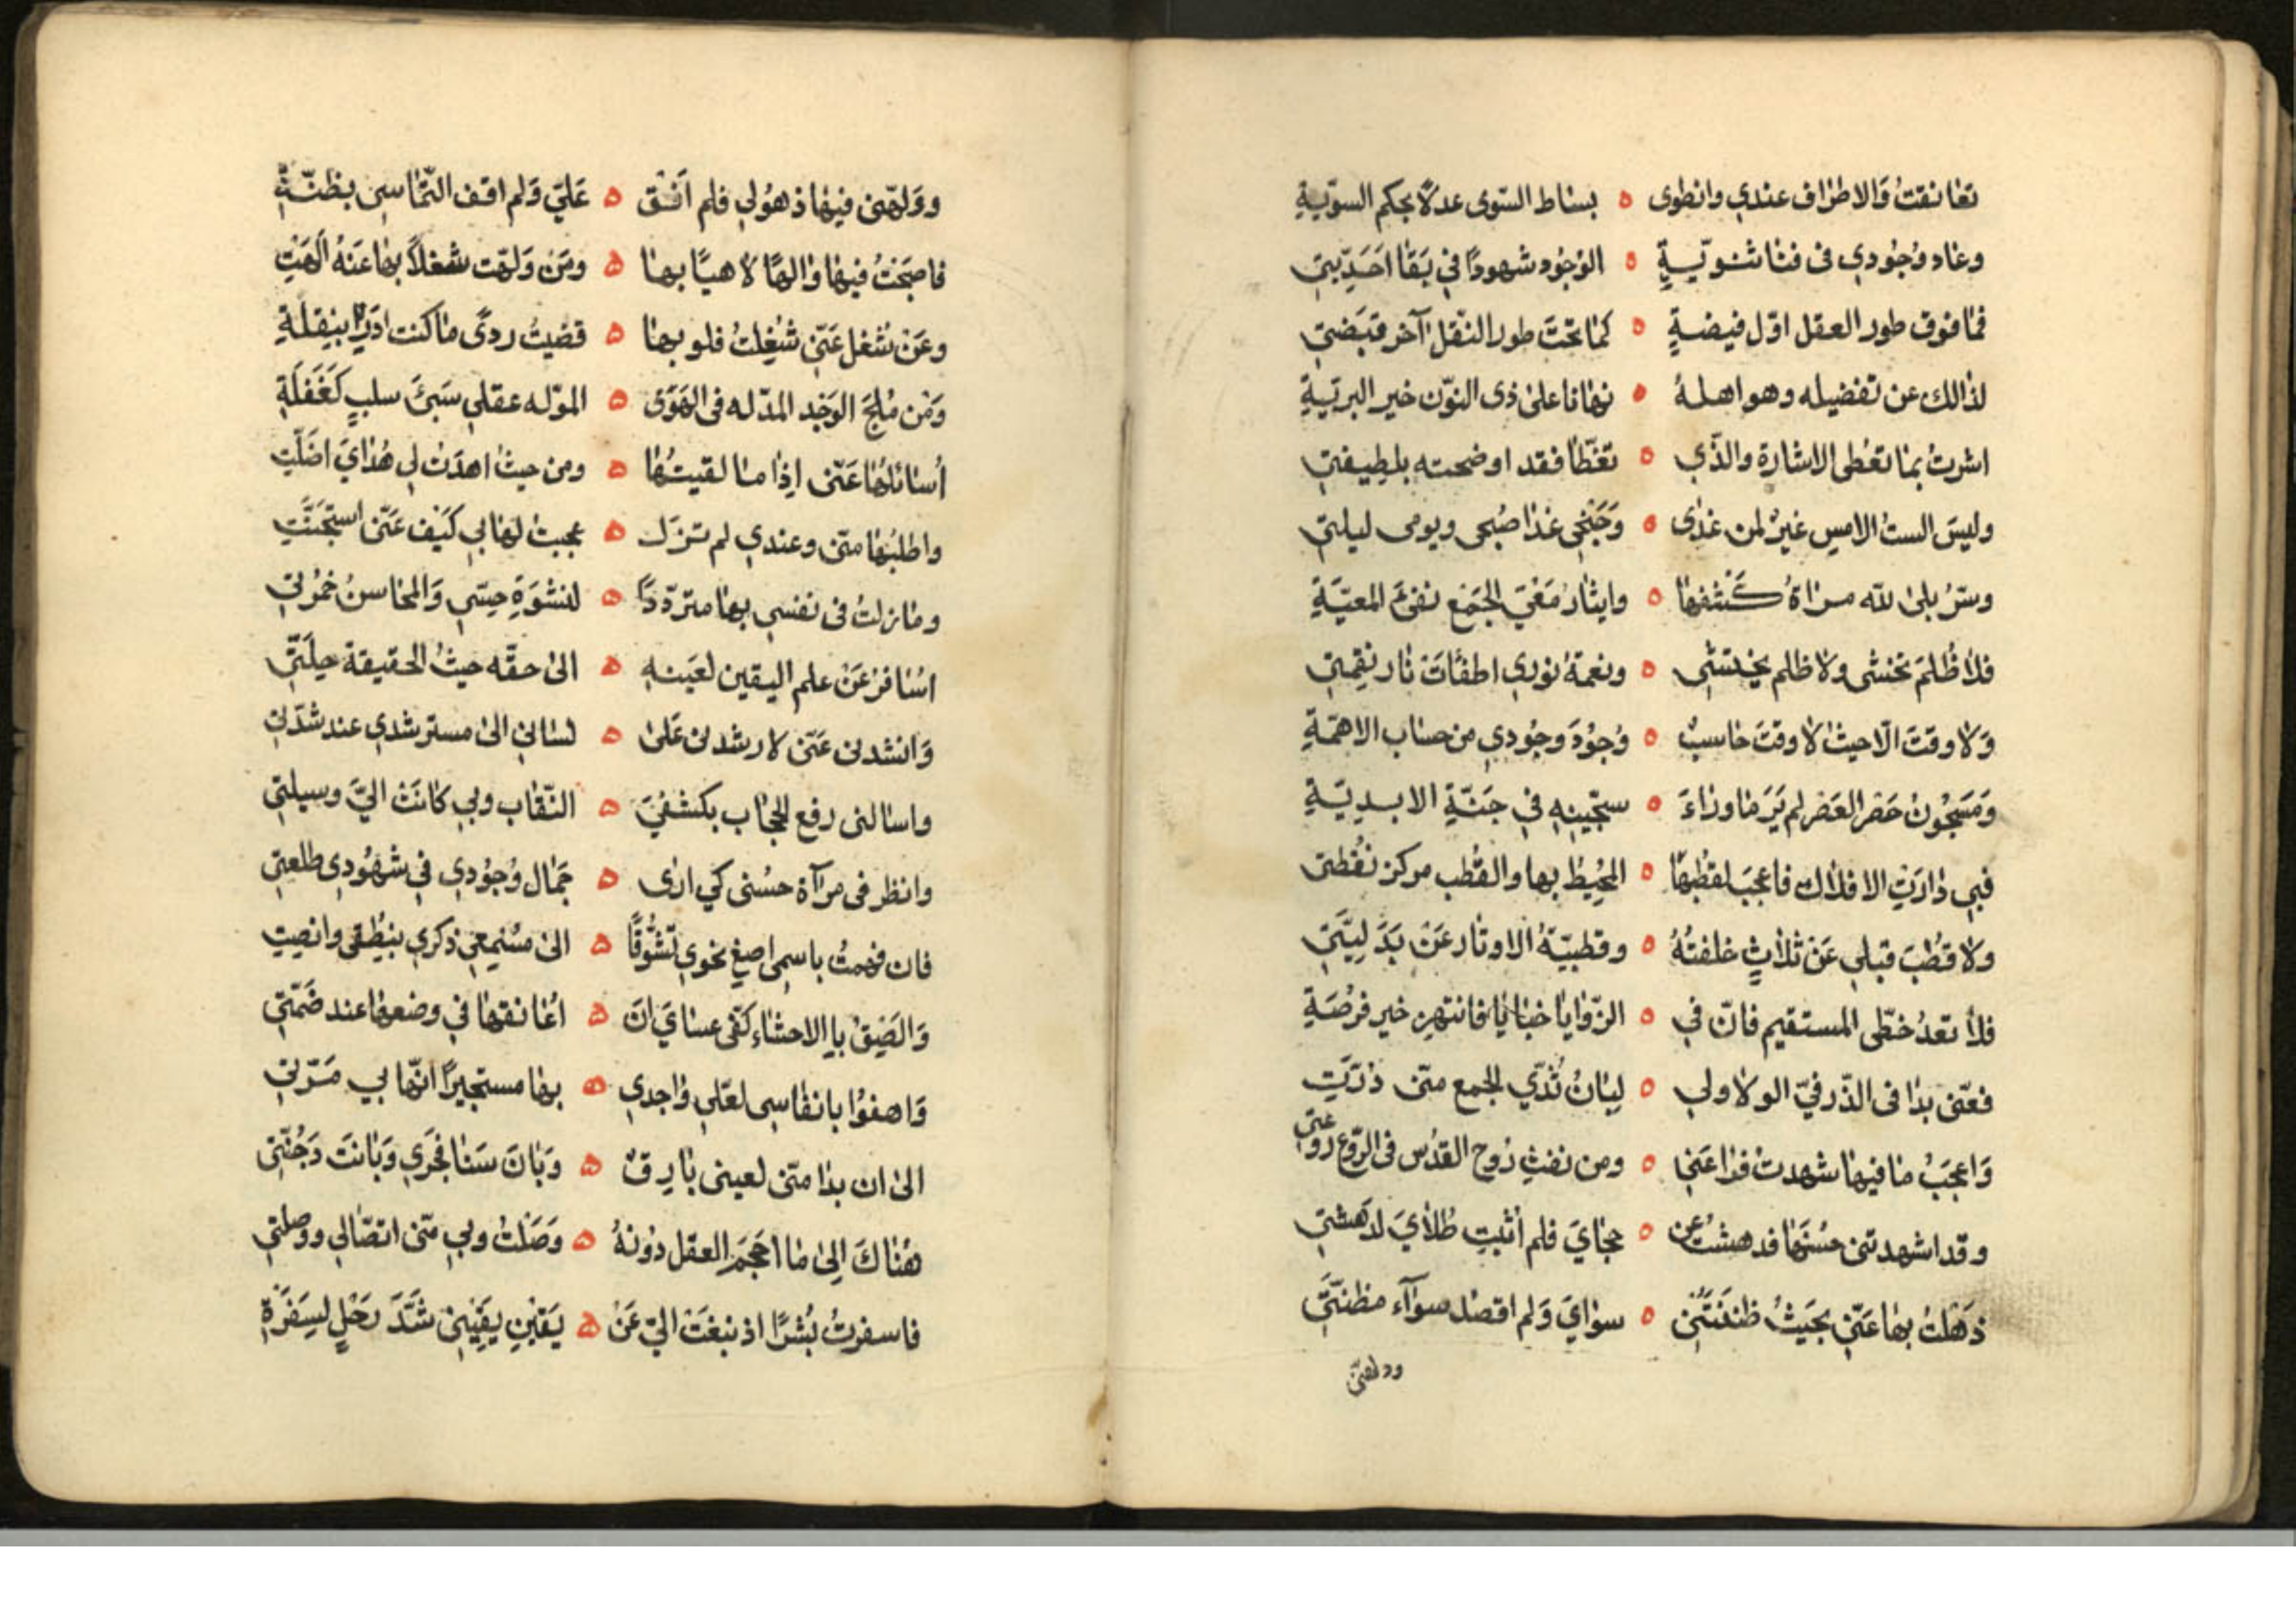 تعانقت والاطراف عندي وانطوى ه بساط السّوى عدلاً بحكم السوّيةِ
وعاد وُجُودي فى فنا ثنويّةٍ ه الوُجُود شهودًا فى بَقا احَدِيّتي
فما فوق طور العقل اوّل فيضةٍ ه كما تحتَ طور النّقل آخر قبَضتي
لذالك عن تفضيله وهو اهلهُ ه نهانا على ذى النّون خير البريّةِ
اشرتُ بما تعُطى الاشارة والذّي ه تغطّا فقد اوضحته بلطِيفتي
وليسَ الستُ الامسِ غيرٌ لمن غدٰى ه وَجَنحى غدا صُبحى ويومى ليلتي
وسّرُ بلىٰ لله مراةُ كَشفها ه واثبات مَعْنىَ الجَمَع نفىُ المعيّةِ
فلا ظُلَمَ تخشى ولا ظلم يختشٰي ه ونعمةُ نوري اطفئات نار نِقمتي
وَلا وقتَ الّا حيث لا وقتَ حاسبٌ ه وُجوُدَ وجُودي من حساب الاهمّةِ
وَمَسجُون حَصْر العَصْر لم يَرَ ما وراءَ ه سجّينهِ فى جَنّةِ الابديّةِ
فبي دارَتِ الافلاك فاعجبَ لقطُبها ه المحُيِطُ بها والقُطب مركز نُقطتى
ولا قُطبَ قبلي عَن ثلاثٍ خلفتهُ ه وقطبيّةُ الاوتار عَن بَدَليّتَي
فلا تعدُ خطّى المستقيم فانّ في ه الزّوايا خبايا فانتهِز خير فرُصَةِ
فعنّى بدا فى الذّر فيّ الولا ولي ه لِبانُ ثُدّي الجمع منّى دَرّتِ
وَاعجَبُ ما فيها شهدت فراعَنى ه ومن نفثِ رُوح القدُس فى الرّوع روعتى
وقد اشهدتنى حُسْنَها فدهشتُ عن ه حجاىَ فلم اُثبتِ حُلايَ لدَهشتي
ذَهَلتُ بها عَنّي بحَيثُ ظنَنتَني ه سوايَ وَلم اقصد سوآء مظنّتَي
ودلهتنى
وولّهتنى فيها ذهوُلي فلم اَفُق ه عَليّ وَلم اقف التّماسى بظنّتي
فاصبَحتُ فيها والهًا لاهيًا بها ه ومَن وَلهّت شغلاً بها عَنهُ اَلهَتِ
وعَن شُغل عَنّي شُغِلتُ فلو بها ه قضيتُ ردىً ما كنت ادَري بنِقلةِ
وَمن مُلَح الوَجْد المدّله فى الهَوَى ه المولّه عقلي سَبيَ سلبٍ كغَفلَةِ
اُسائلها عَنّى اِذا ما لقيتُها ه ومن حيثُ اهدَت لي هُدايَ اضَلّتِ
واطلبُها منّى وعندي لم تزَل ه عجبت لها بي كيَف عَنّى استَجَنّتِ
وما زلتُ فى نفسى بها متردّدًا ه لنشوَةِ حسّي وَالمحاسنُ خمُرتي
اسافر عَن علم اليقين لعَينهِ ه الىٰ حقّه حيثُ الحقيقة حلِلَتّي
وَانشدنى عَنّى لارشدنى عَلىٰ ه لسانى الىٰ مسترشدي عند نشدَتي
واسالنى رفع الحجاب بكشفيَ ه النّقاب وبي كانت اليَّ وسيلتي
وانظر فى مرآة حسُنى كي ارى ه جَمَال وُجوُدي في شهُودي طلعتي
فان فهمتُ باسمى اصغِ نحوى تشُوّقًا ه الىٰ مسُمِعي ذكري بنُطقى وانصِتِ
وَالصَقُ بالاحشاء كفّى عساىَ ان ه اعُانقها في وضعها عند ضَمّتي
وَاهفوُا بانفاسى لعلّي واجدي ه بها مستجيرًا انّها بي مَرّتي
الىٰ ان بدا منّى لعينى بارقٌ ه وَبَان سَنا فجرَي وَبانتَ دَجُنّتى
هُناكَ اِلىٰ ما احَجمَ العقل دوُنهُ ه وَصَلتُ وبي منّى اتصّالي ووصلتي
فاسفرتُ بُشرًا اذ بَلغَتُ اليّ عَن ه يَقينِ يقَينِى شَدَّ رَحَلٍ لسِفَرَةِ